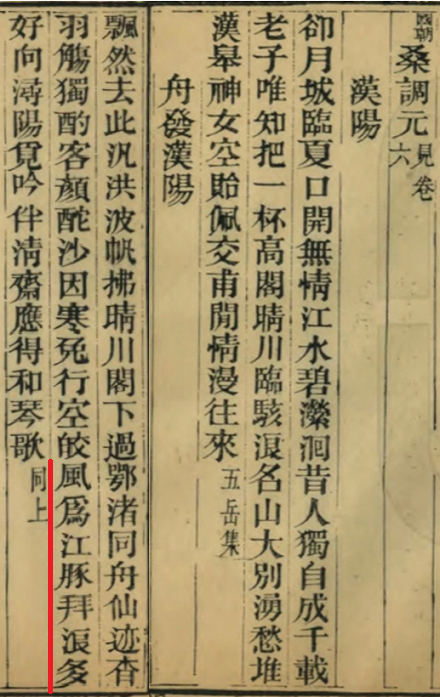 國朝桑調元見卷六
漢陽
卻月城臨夏口開無情江水碧瀠洄昔人獨自成千載
老子唯知把一杯高閣晴川臨駭浪名山大別湧愁堆
漢皋神女空貽佩交甫閒情漫往來五岳集
舟發漢陽
飄然去此汎洪波帆拂晴川閣下過鄂渚同舟仙迹杳
羽觴獨酌客顏酡沙因寒兔行空皎風爲江豚拜浪多
好向潯陽覓吟伴清齋應得和琴歌同上